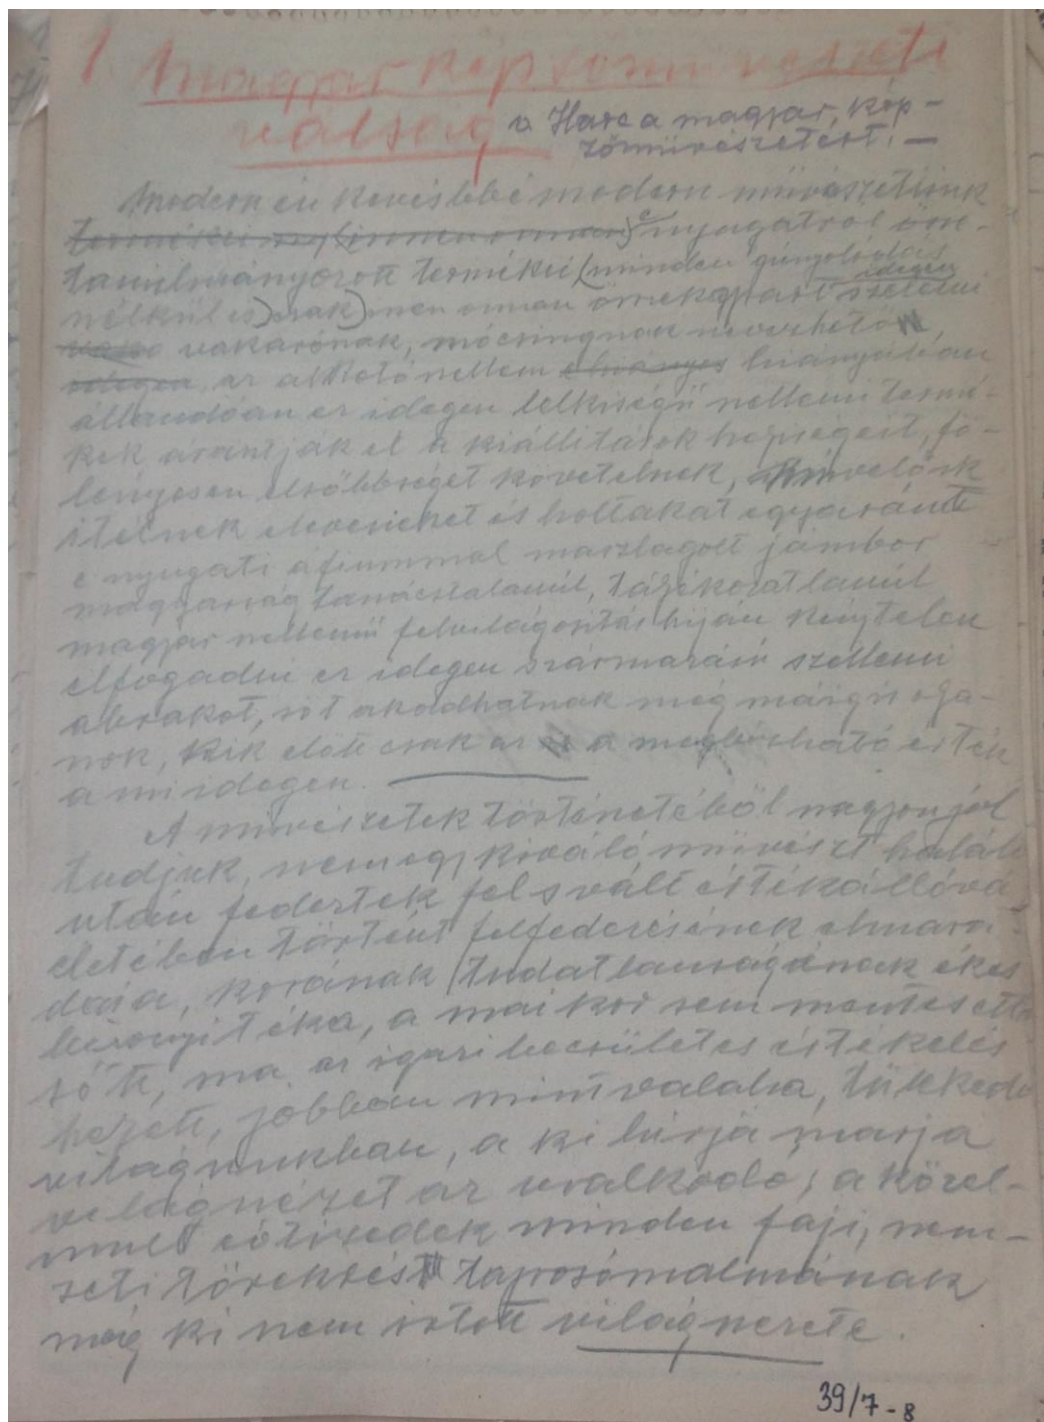 1 Magyar képzőművészeti
válság v. Harc a magyar kép-
zőművészetért! —
Modern és kevésbbé modern művészetünk
termékei nyugatról össze-
tanulmányozott termékei (minden gúnyolódás
nélkül is) csak innen onnan idegen
vakarónak, mócsingnak nevezhetők,
idegen, az alkotó szellem hiányában
állandóan ez idegen lelkiségű szellemi termé-
kek árasztják el a kiállítások helyiségeit, fö-
lényesen elsőbbséget követelnek,
itélnek eleveneket és holtakat egyaránt
e nyugati áfiummal maszlagolt jámbor
magyarság tanácstalanúl, tájékozatlanúl
magyar szellemű felvilágosítás hiján kénytelen
elfogadni ez idegen származású szellemi
abrakot, sőt akadhatnak még máig is olya-
nok, kik előtt csak az a megbízható érték
a mi idegen.
A művészetek történetéből nagyon jól
tudjuk, nem egy kiváló művészt halála
után fedeztek fel s vált értékállóvá,
életében történt felfedezésének elmara-
dása, korának tudatlanságának ékes
bizonyitéka, a mai kor sem mentes ettől
sőt, ma az igazi becsületes értékelés
helyett, jobban mint valaha, tülekedő
világunkban, a ki birja marja
világnézet az uralkodó, a közel-
mult évtizedek minden faji, nem-
zeti törekvést taposómalmának
még ki nem irtott világnézete.
39/7-8